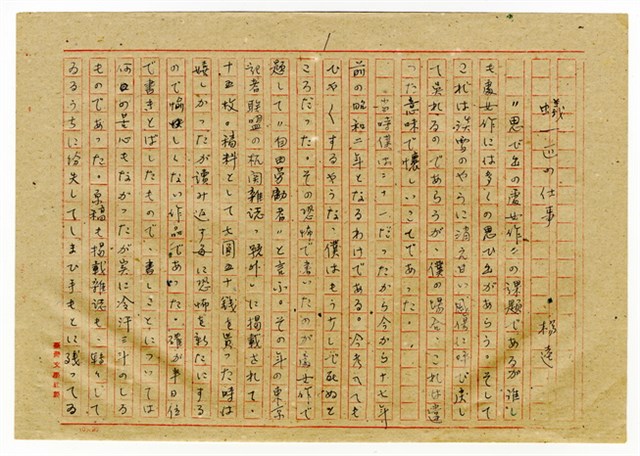 蟻一匹の仕事
楊逵
"思ひ出の處女作"の課題であるが誰し
も處女作には多くの思ひ出があらう。そして
これは淡雪のやうに消え甘い感傷に呼び戻し
て呉れるのであらうが、僕の場合、これは違
った意味で懐しいことであった。
当時僕は二一だったから今から十七年
前の昭和二年となるわけである。今考へても
ひやくするやうな、僕はもう少しで死ぬと
ころだった。その恐怖で書いたのが處女作で
題して"自由勞働者"と言ふ。その年の東京
記者聯盟の机関雑誌"號外"に掲載されて、
十五枚の稿料として七圓五十銭を貰った時は
嬉しかったが讀み返す毎に恐怖を新たにする
ので愉しくない作品であった。確か半日位
で書きとばしたもので、書くことについては
何の苦心もなかったが実に冷汗三斗のしろ
ものであった。原稿も掲載雑誌も、轉々して
ゐるうちに紛失してしまひ手もとに残ってゐ
1